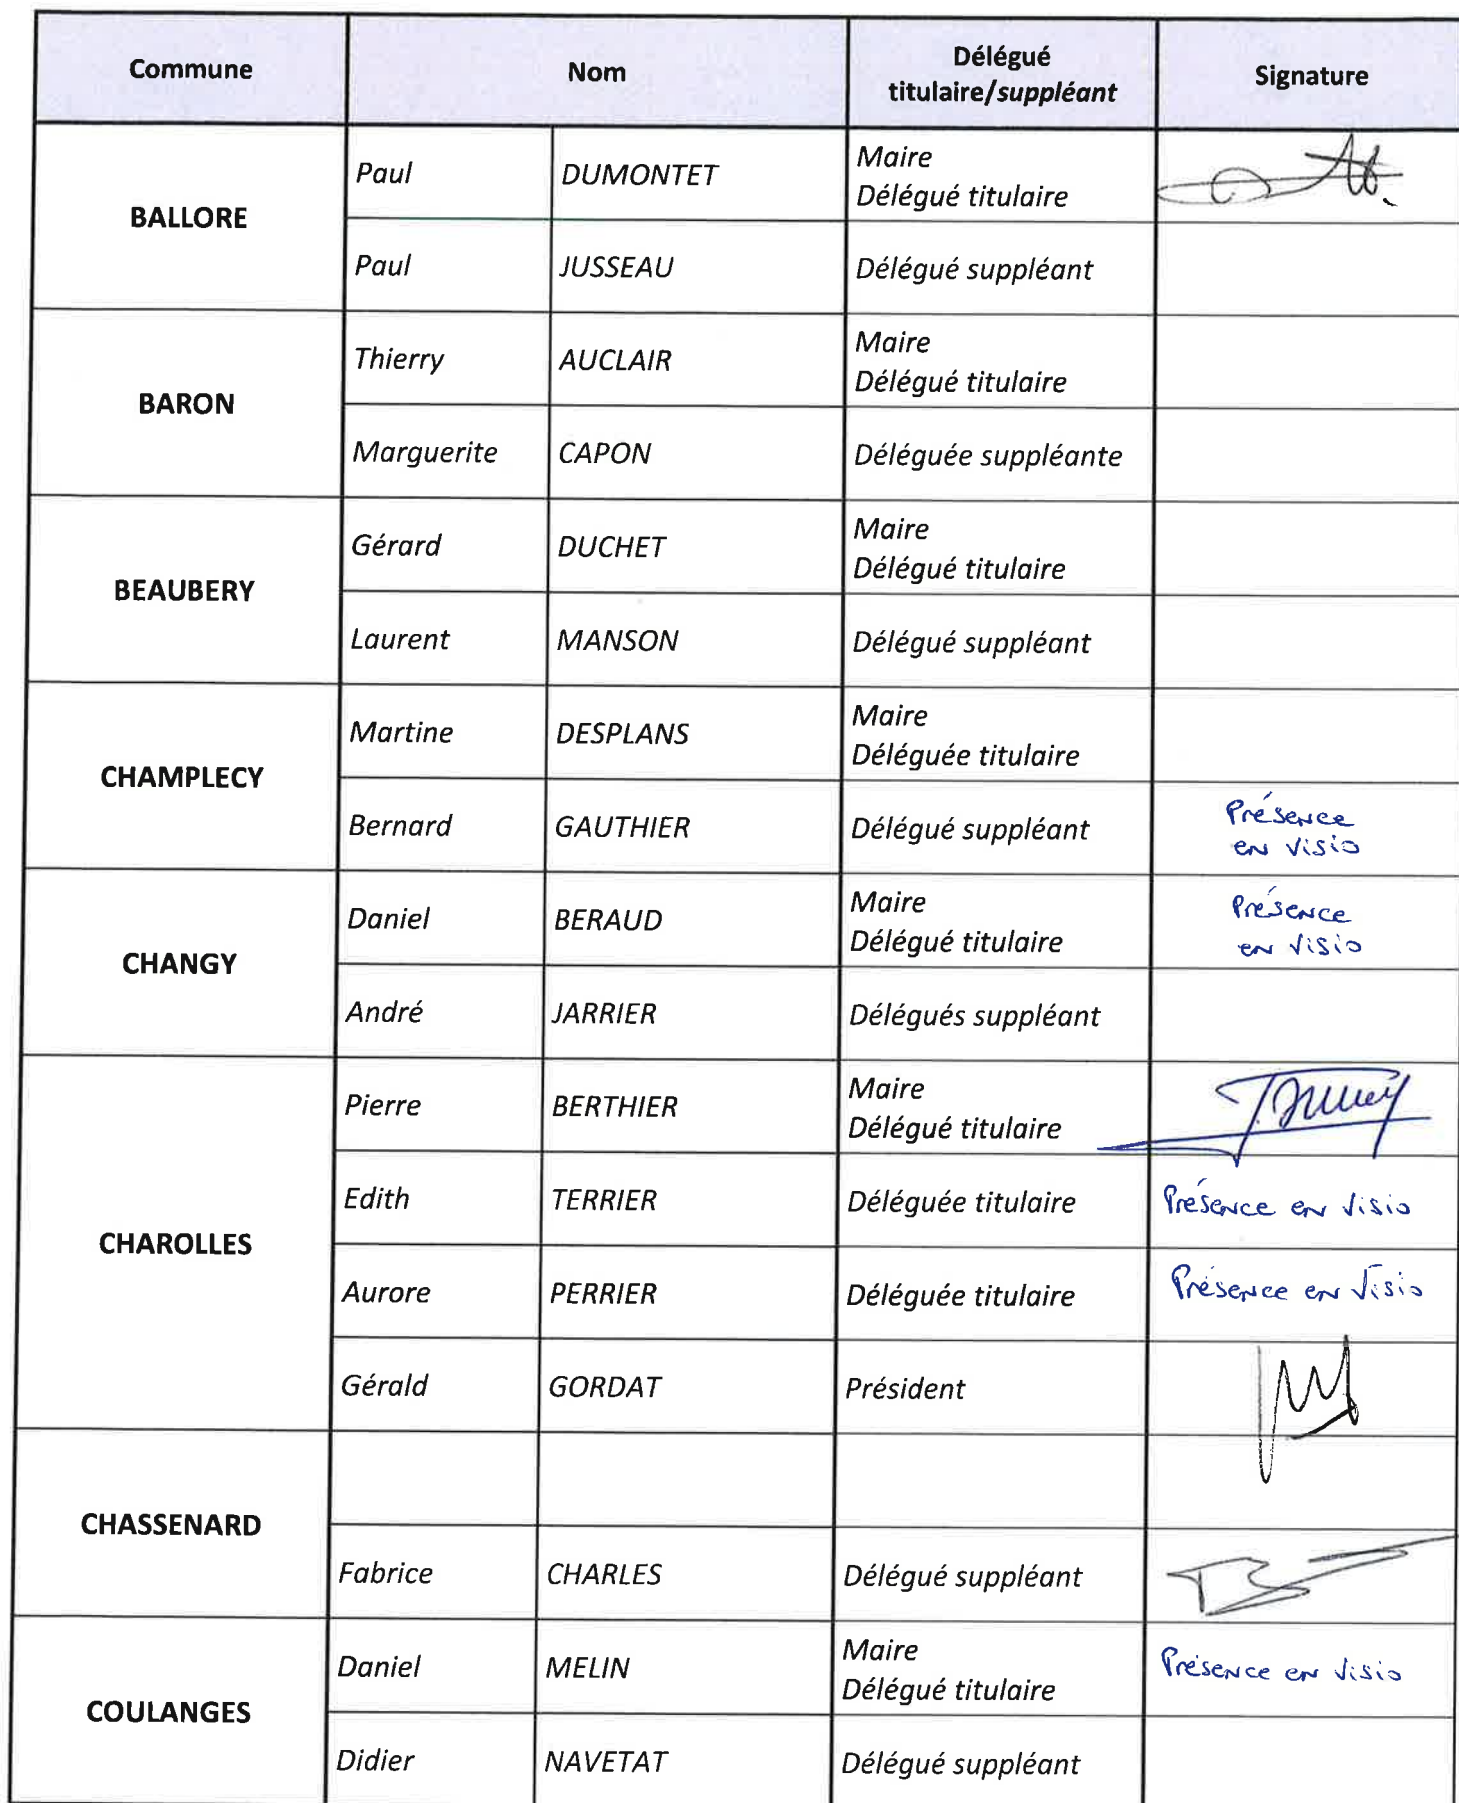 Commune Nom Délégué titulaire/suppléant Signature
BALLORE
Paul DUMONTET Maire
Délégué titulaire
Paul JUSSEAU Délégué suppléant
BARON
Thierry AUCLAIR Maire
Délégué titulaire
Marguerite CAPON Déléguée suppléante
BEAUBERY
Gérard DUCHET Maire
Délégué titulaire
Laurent MANSON Délégué suppléant
CHAMPLECY
Martine DESPLANS Maire
Déléguée titulaire
Bernard GAUTHIER Délégué suppléant Présence
en visio
CHANGY
Daniel BERAUD Maire Présence
Délégué titulaire en visio
André JARRIER Délégués suppléant
CHAROLLES
Pierre BERTHIER Maire
Délégué titulaire
Edith TERRIER Déléguée titulaire Présence en visio
Aurore PERRIER Déléguée titulaire Présence en visio
Gérald GORDAT Président
CHASSENARD
Fabrice CHARLES Délégué suppléant
COULANGES
Daniel MELIN Maire Présence en visio
Délégué titulaire
Didier NAVETAT Délégué suppléant